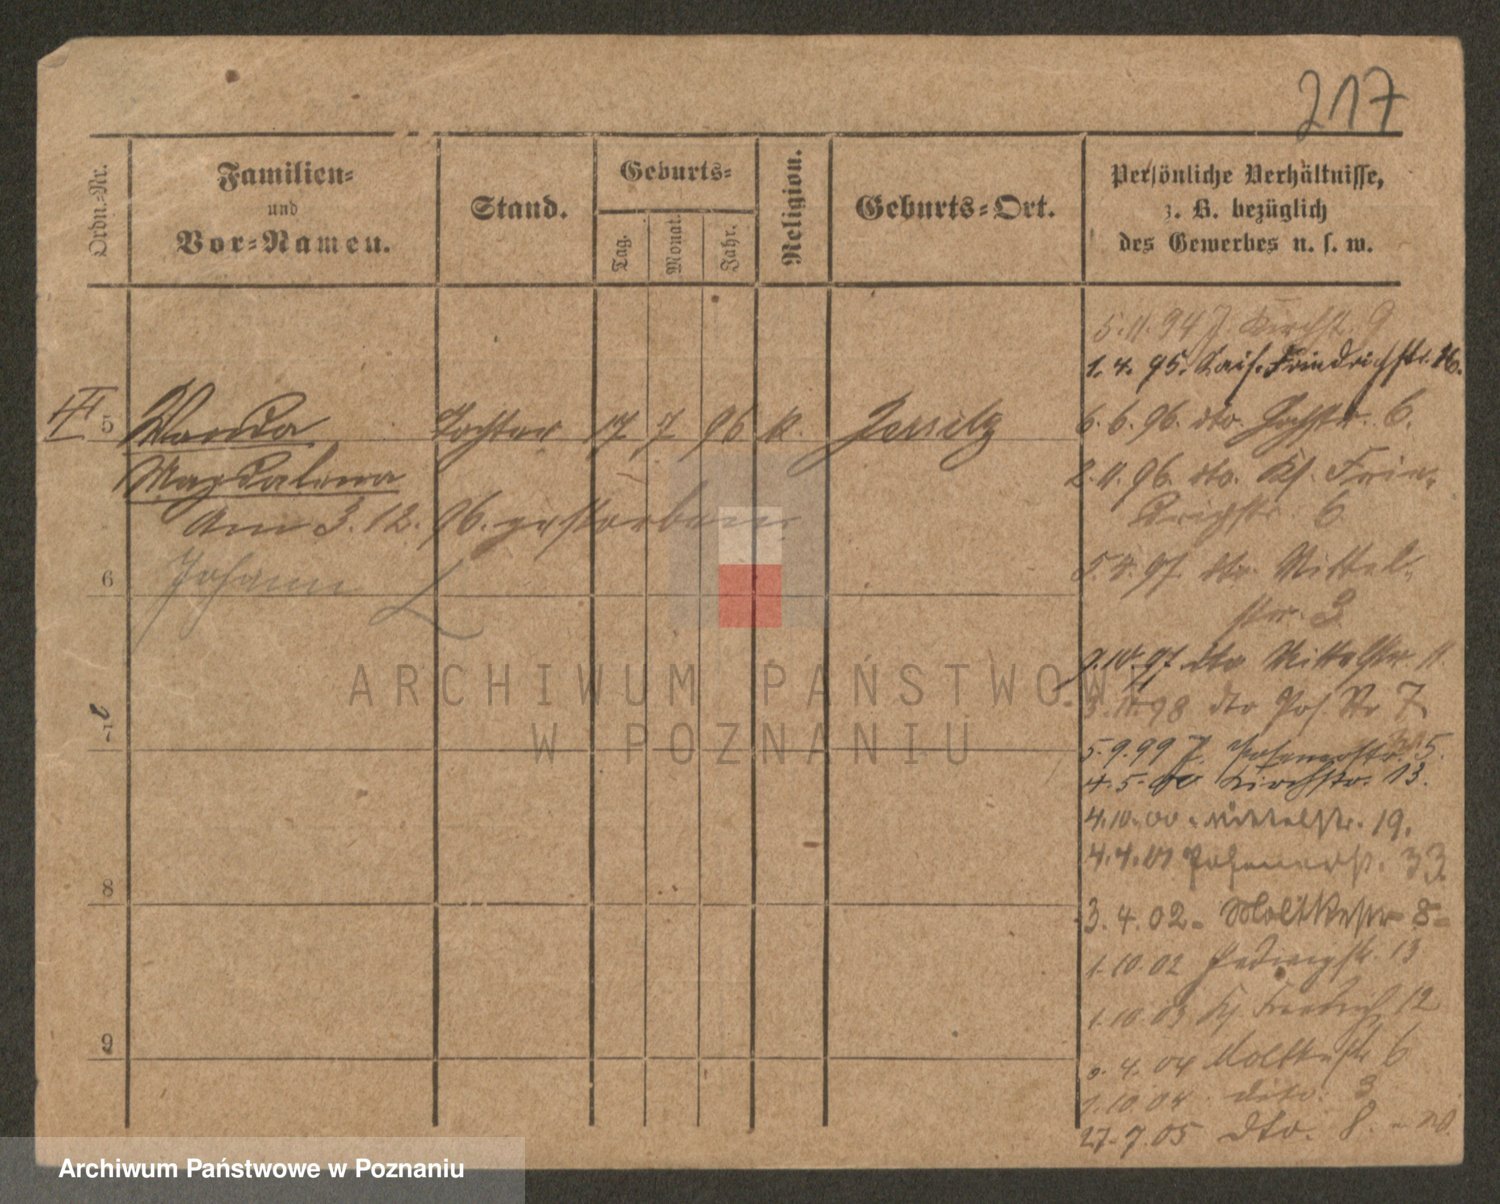 217
Ordn.-Nr.
Familien-
und
Vor-Namen.
Stand.
Geburts-
Tag.
Monat.
Jahr.
Religion.
Geburts-Ort.
Persönliche Verhältnisse,
z. B. bezüglich
des Gewerbes u. s. w.
5.11.94 J. Kirchstr. 9
1.4.95. Kais. Friedrichstr. 16.
III 5 Wanda Tochter 17 7 96 k. Jersitz
6.6.96. dto 6.
Magdalena
2.11.96. dto. Ks. Frie-
drichstr. 6
am 3.12.96. gestorben
6 Johann
5.4.97 dto Mittel-
str. 3
9.10.97 dto Mittelstr. 11
3.11.98 dto Pos. Str 7
7
5.9.99 J. Posenerstr. 5.
4.5.00 Kirchstr. 13.
4.10.00 Mittelstr. 19.
4.4.01 Posenerstr. 33
8
3.4.02 - Moltkestr 8 -
1.10.02 Hedwigstr. 13
1.10.03 Ks. Friedrich 12
9
4.04 Moltkestr 6
1.10.04 dito. 3
27.7.05 dto. 8.
ARCHIWUM PAŃSTWOWE
W POZNANIU
Archiwum Państwowe w Poznaniu